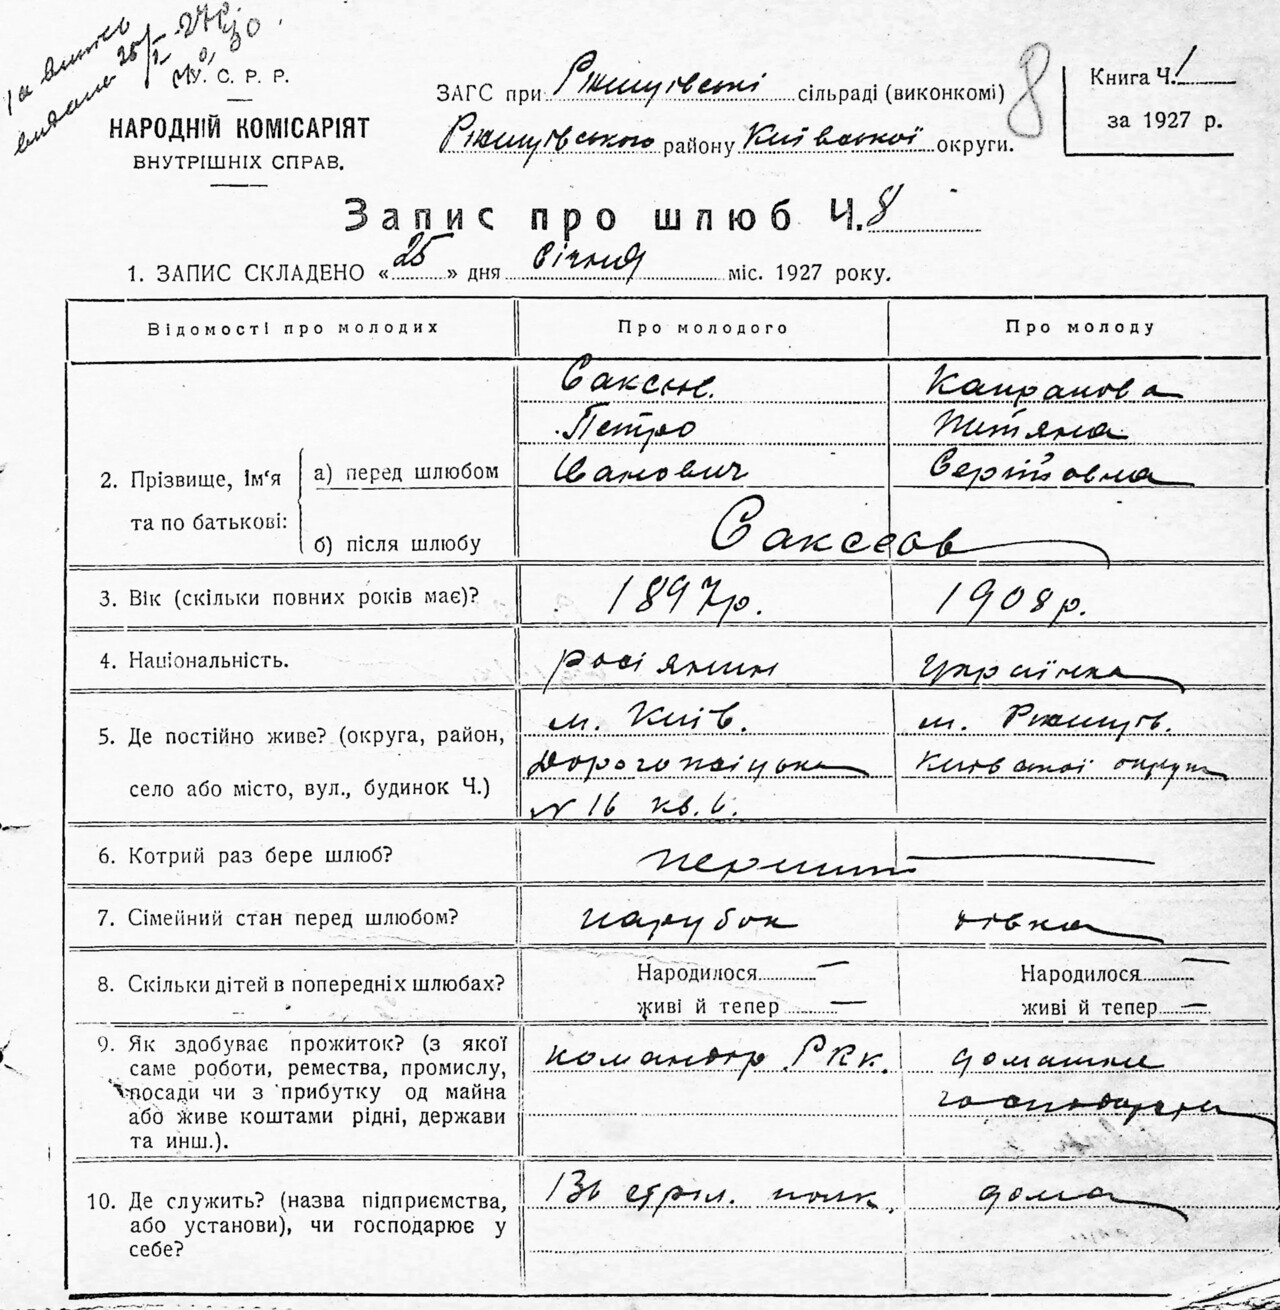 За випис
видано 25/I 27 р.
№ 30
У. С. Р. Р.
НАРОДНІЙ КОМІСАРІЯТ
ВНУТРІШНІХ СПРАВ.
ЗАГС при Ржищівські сільраді (виконкомі)
Ржищівського району Київської округи.
8
Книга Ч. 1
за 1927 р.
Запис про шлюб Ч. 8
1. ЗАПИС СКЛАДЕНО «25» дня січня міс. 1927 року.
Відомості про молодих Про молодого Про молоду
2. Прізвище, ім‘я та по батькові:
а) перед шлюбом
Капранова
Петро Тетяна
Иванович Сергіовна
б) після шлюбу
3. Вік (скільки повних років має)? 1897р. 1908р.
4. Національність. росіянин Українка
5. Де постійно живе? (округа, район,
село або місто, вул., будинок Ч.)
м. Київ. м. Ржищів.
Дорогожицька Київської округи
N 16 кв. 6.
6. Котрий раз бере шлюб? перший
7. Сімейний стан перед шлюбом? парубок дівка
8. Скільки дітей в попередніх шлюбах? Народилося — Народилося —
живі й тепер — живі й тепер —
9. Як здобуває прожиток? (з якої
саме роботи, ремества, промислу,
посади чи з прибутку од майна
або живе коштами рідні, держави
та инш.).
командір РКК. домашне
господарство
10. Де служить? (назва підприємства,
або установи), чи господарює у
себе?
136 стріл. полк. дома